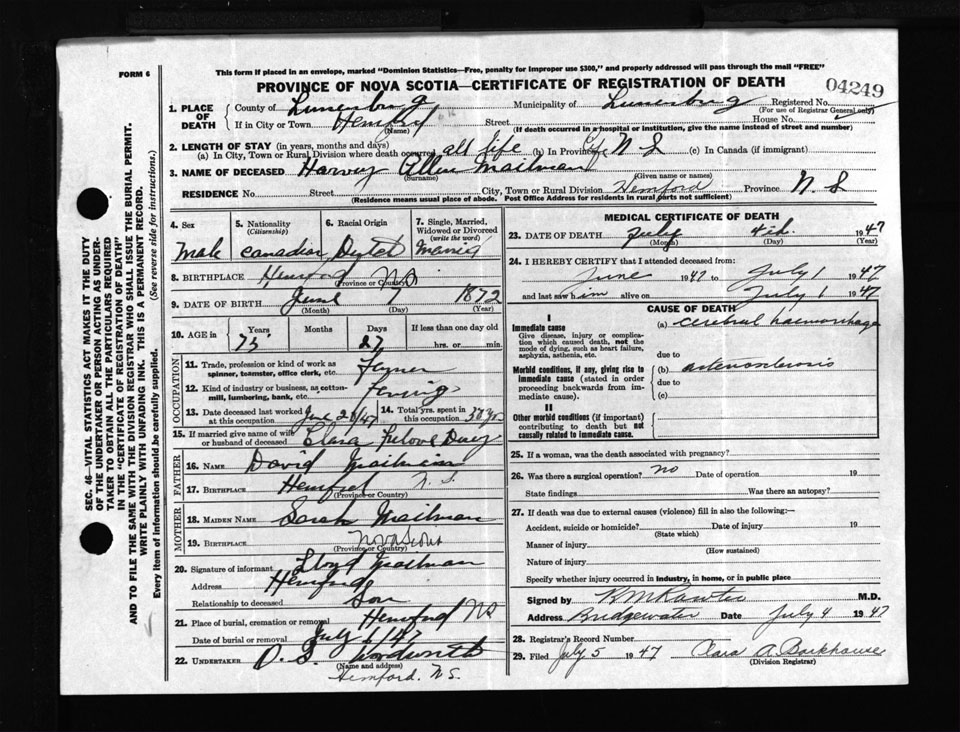 FORM 6
This form if placed in an envelope, marked "Dominion Statistics—Free, penalty for improper use $300," and properly addressed will pass through the mail "FREE"
PROVINCE OF NOVA SCOTIA—CERTIFICATE OF REGISTRATION OF DEATH
04249
1. PLACE OF DEATH County of Lunenburg Municipality of Lunenburg Registered No.
(For use of Registrar General only)
If in City or Town Hemford Street House No.
(Name) (If death occurred in a hospital or institution, give the name instead of street and number)
2. LENGTH OF STAY (in years, months and days)
(a) In City, Town or Rural Division where death occurred all life (b) In Province life N S (c) In Canada (if immigrant)
3. NAME OF DECEASED Harvey Allen Mailman
(Surname) (Given name or names)
RESIDENCE No. Street City, Town or Rural Division Hemford Province N. S
(Residence means usual place of abode. Post Office Address for residents in rural parts not sufficient)
4. Sex 5. Nationality (Citizenship) 6. Racial Origin 7. Single, Married, Widowed or Divorced (write the word)
Male Canadian Dutch Married
8. BIRTHPLACE Hemford NS
(Province or Country)
9. DATE OF BIRTH June 7 1872
(Month) (Day) (Year)
10. AGE in Years Months Days If less than one day old
75 27 hrs. or min.
OCCUPATION
11. Trade, profession or kind of work as spinner, teamster, office clerk, etc. Farmer
12. Kind of industry or business, as cotton-mill, lumbering, bank, etc. Farming
13. Date deceased last worked at this occupation June 28/47 14. Total yrs. spent in this occupation
15. If married give name of wife or husband of deceased Clara
FATHER
16. NAME David Mailman
17. BIRTHPLACE Hemford N. S.
(Province or Country)
MOTHER
18. MAIDEN NAME Sarah Mailman
19. BIRTHPLACE Nova Scotia
(Province or Country)
20. Signature of informant Lloyd Mailman
Address Hemford
Relationship to deceased Son
21. Place of burial, cremation or removal Hemford NS
Date of burial or removal July 6/47
22. UNDERTAKER D. S. Wordworth
(Name and address)
Hemford. N.S.
MEDICAL CERTIFICATE OF DEATH
23. DATE OF DEATH July 4th. 1947
(Month) (Day) (Year)
24. I HEREBY CERTIFY that I attended deceased from:
June 1942 to July 1 1947
and last saw him alive on July 1 1947
CAUSE OF DEATH
I
Immediate cause (a) cerebral haemorrhage
Give disease, injury or complication which caused death, not the mode of dying, such as heart failure, asphyxia, asthenia, etc.
due to
Morbid conditions, if any, giving rise to immediate cause (stated in order proceeding backwards from immediate cause). (b) arteriosclerosis
due to
(c)
II
Other morbid conditions (if important) contributing to death but not causally related to immediate cause.
25. If a woman, was the death associated with pregnancy?
26. Was there a surgical operation? no Date of operation 19
State findings Was there an autopsy?
27. If death was due to external causes (violence) fill in also the following:—
Accident, suicide or homicide? Date of injury 19
(State which)
Manner of injury
(How sustained)
Nature of injury
Specify whether injury occurred in industry, in home, or in public place
Signed by M.D.
Address Bridgewater Date July 4 1947
28. Registrar's Record Number
29. Filed July 5 1947 Clara A. Barkhouse
(Division Registrar)
SEC. 46—VITAL STATISTICS ACT MAKES IT THE DUTY
OF THE UNDERTAKER OR PERSON ACTING AS UNDER-
TAKER TO OBTAIN ALL THE PARTICULARS REQUIRED
IN THE "CERTIFICATE OF REGISTRATION OF DEATH"
AND TO FILE THE SAME WITH THE DIVISION REGISTRAR WHO SHALL ISSUE THE BURIAL PERMIT.
WRITE PLAINLY WITH UNFADING INK. THIS IS A PERMANENT RECORD.
Every item of information should be carefully supplied. (See reverse side for instructions.)